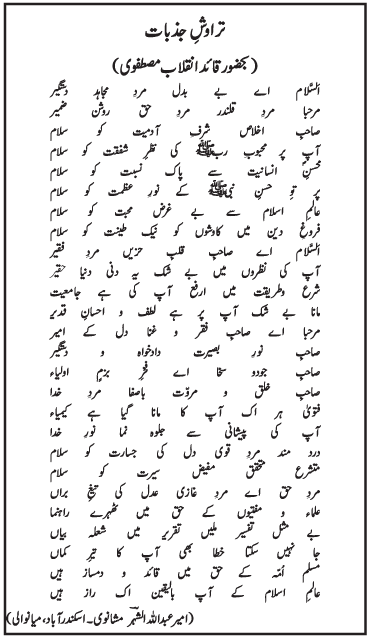 تراوشِ جذبات
(بحضور قائد انقلاب مصطفوی)
السّلام اے بے بدل مردِ مجاہد دستگیر
مرحبا مردِ قلندر مردِ حق روشن ضمیر
صاحبِ اخلاص شرفِ آدمیت کو سلام
آپ پر محبوبِ ربﷺ کی نظرِ شفقت کو سلام
محسنِ انسانیت سے پاک نسبت کو سلام
پر توِ حسنِ نبیﷺ کے نورِ عظمت کو سلام
عالمِ اسلام سے بے غرض محبت کو سلام
فروغِ دین میں کاوشوں کو نیک طینت کو سلام
السّلام اے صاحبِ قلبِ حزیں مردِ فقیر
آپ کی نظروں میں بے شک یہ دنی دنیا حقیر
شرع وطریقت میں ارفع آپ کی ہے جامعیت
مانا بے شک آپ پر ہے لطف و احسانِ قدیر
مرحبا اے صاحبِ فقر و غنا دل کے امیر
صاحبِ نورِ بصیرت دادخواہ و دستگیر
صاحبِ جودو سخا اے فخرِ بزمِ اولیاء
صاحبِ خلق و مروّت باصفا مردِ خدا
فتویٰ ہر اک آپ کا مانا گیا ہے کیمیاء
آپ کی پیشانی سے جلوہ نما نورِ خدا
درد مند مردِ قوی دل کی جسارت کو سلام
متشرع متحقق مفیض سیرت کو سلام
مردِ حق اے مردِ غازی عدل کی تیغِ براں
علماء و مفتیوں کے حق میں ٹھہرے راہنما
بے مثل تفسیر ملیں تقریر میں شعلہ بیاں
جا نہیں سکتا خطا بھی آپ کا تیرِ کماں
مسلم اُمّہ کے حق میں قائد و دمساز ہیں
عالمِ اسلام کے آپ بالیقین اک راز ہیں
(امیر عبداللہ الشہرؔ مشانوی۔ اسکندرآباد، میانوالی)